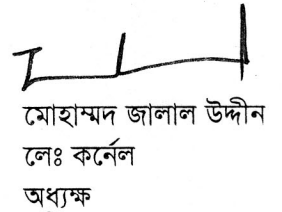 মোহাম্মদ জালাল উদ্দীন
লেঃ কর্নেল
অধ্যক্ষ